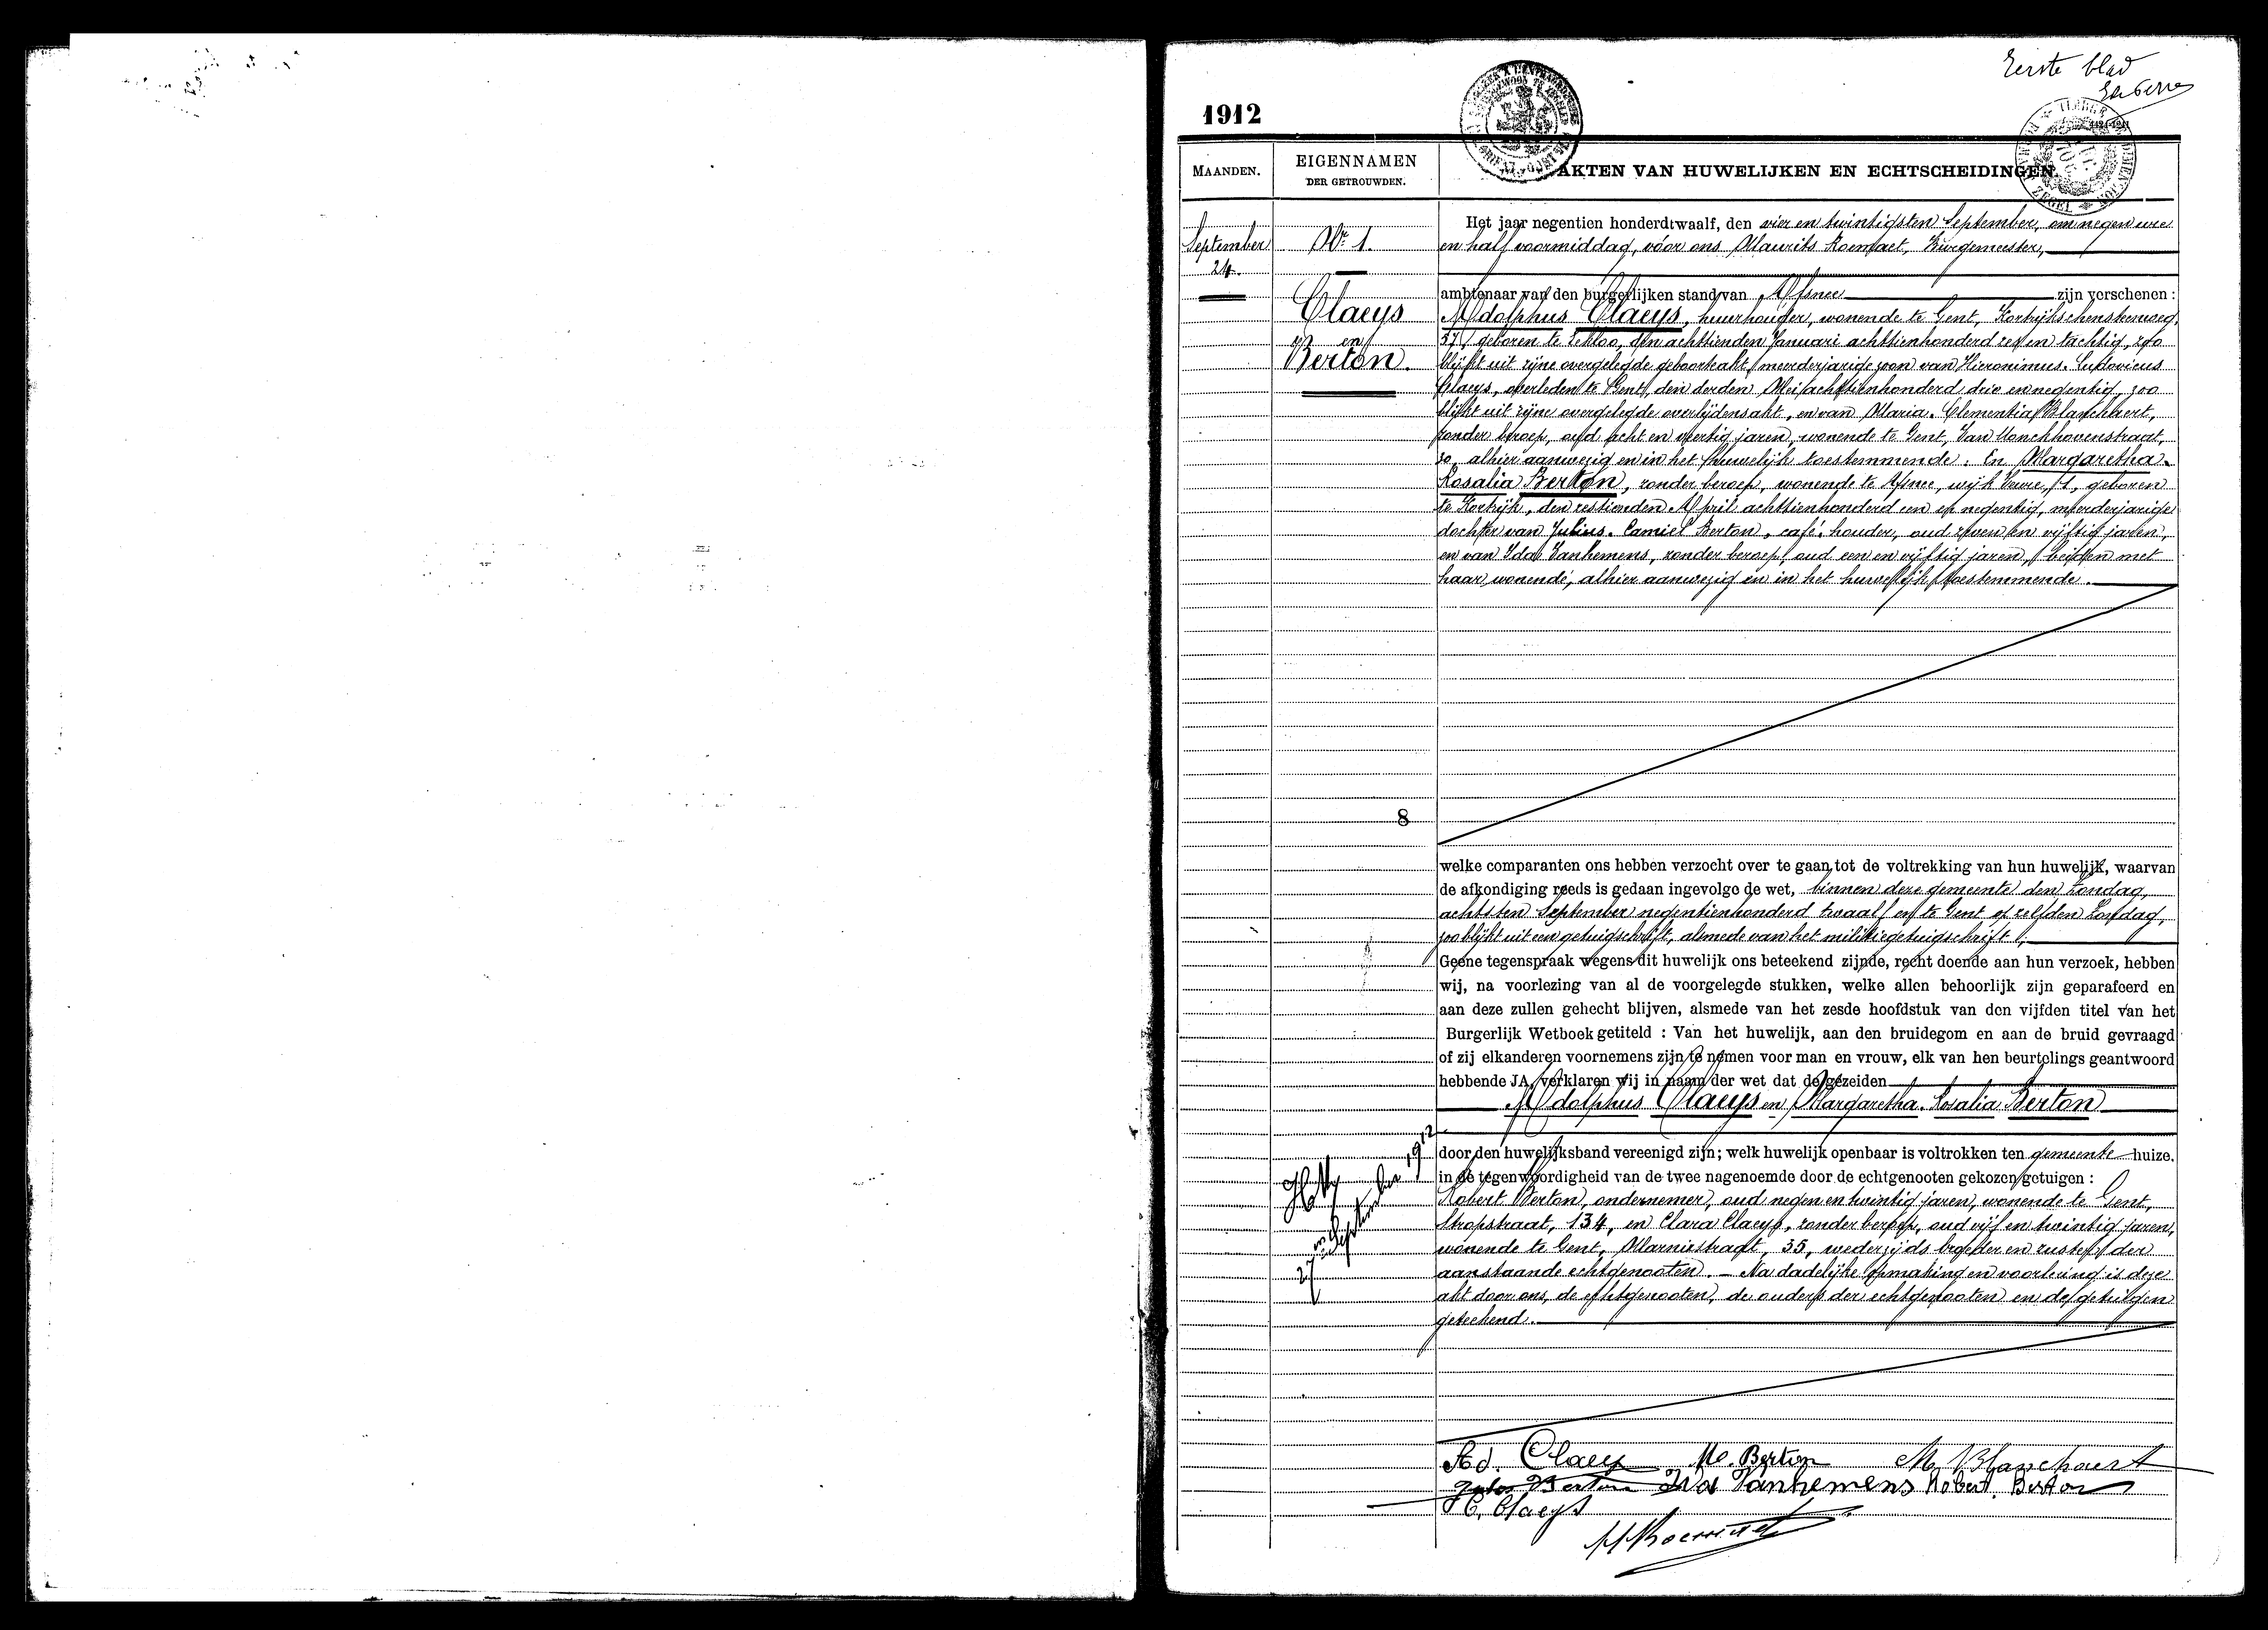 Eerste blad
1912
MAANDEN.
EIGENNAMEN
DER GETROUWDEN.
AKTEN VAN HUWELIJKEN EN ECHTSCHEIDINGEN.
September
24.
Nr. 1.
Claeys
en
Berton.
Het jaar negentien honderdtwaalf, den vier en twintigsten September, om negen ure
en half voormiddag, vóor ons Maurits Boenaet, Burgemeester,
ambtenaar van den burgerlijken stand van Afsnee zijn verschenen :
Adolphus Claeys, huurhouder, wonende te Gent, Kortrijkschensteenweg,
57, geboren te Eekloo, den achttienden Januari achttienhonderd zes en tachtig, zoo
blijkt uit zijne overgelegde geboorteakt, meerderjarige zoon van Hieronimus. Ludovicus
Claeys, overleden te Gent, den derden Mei achttienhonderd drie en negentig, zoo
blijkt uit zijne overgelegde overlijdensakt, en van Maria. Clementia Blanchaert,
zonder beroep, oud acht en veertig jaren, wonende te Gent, Van Monckhovenstraat,
30, alhier aanwezig en in het huwelijk toestemmende. En Margaretha.
Rosalia Berton, zonder beroep, wonende te Afsnee, wijk Veure, 1, geboren
te Kortrijk, den zestienden April achttienhonderd een en negentig, meerderjarige
dochter van Julius. Camiel Berton, café. houder, oud zeven en vijftig jaren,
en van Ida Vanhemens, zonder beroep, oud een en vijftig jaren, beiden met
haar wonende, alhier aanwezig en in het huwelijk toestemmende.
8
welke comparanten ons hebben verzocht over te gaan tot de voltrekking van hun huwelijk, waarvan
de afkondiging reeds is gedaan ingevolge de wet, binnen deze gemeente den Zondag,
achtsten September negentienhonderd twaalf en te Gent op zelfden Zondag,
zoo blijkt uit een getuigschrift, alsmede van het militiegetuigschrift ;
Geene tegenspraak wegens dit huwelijk ons beteekend zijnde, recht doende aan hun verzoek, hebben
wij, na voorlezing van al de voorgelegde stukken, welke allen behoorlijk zijn geparafeerd en
aan deze zullen gehecht blijven, alsmede van het zesde hoofdstuk van den vijfden titel van het
Burgerlijk Wetboek getiteld : Van het huwelijk, aan den bruidegom en aan de bruid gevraagd
of zij elkanderen voornemens zijn te nemen voor man en vrouw, elk van hen beurtelings geantwoord
hebbende JA, verklaren wij in naam der wet dat de gezeiden
Adolphus Claeys en Margaretha. Rosalia Berton
door den huwelijksband vereenigd zijn; welk huwelijk openbaar is voltrokken ten gemeente huize.
in de tegenwoordigheid van de twee nagenoemde door de echtgenooten gekozen getuigen :
Robert Berton, ondernemer, oud negen en twintig jaren, wonende te Gent,
Stropstraat, 134, en Clara Claeys, zonder beroep, oud vijf en twintig jaren,
wonende te Gent, Marnixstraat, 35, wederzijds broeder en zuster der
aanstaande echtgenooten. — Na dadelijke opmaking en voorlezing is deze
akt door ons, de echtgenooten, de ouders der echtgenooten en de getuigen
geteekend.
27 september 1912
Ad. Claeys M. Berton M. Blanchaert
Jules Berton Ida Vanhemens Robert. Berton
C. Claeys